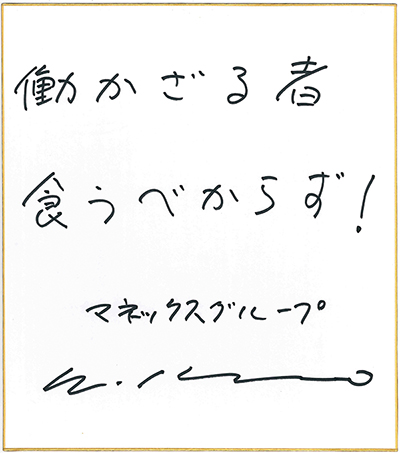 働かざる者
食うべからず！
マネックスグループ